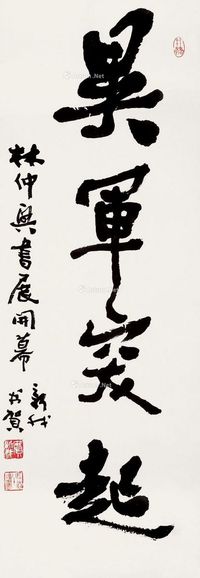 異軍突起
林仲興書展開幕
新我書賀